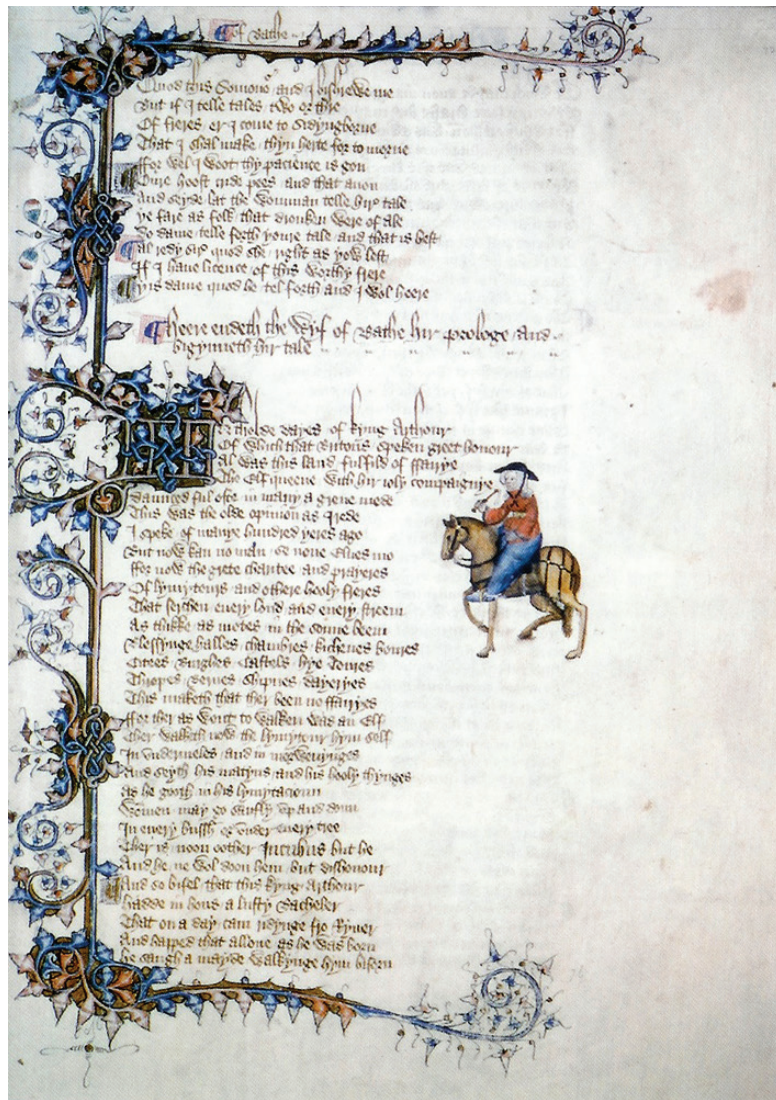 of Bathe
Quod this Somonour and I bishrewe me
But if I telle tales two or thre
Of freres er I come to Sidyngborne
That I shal make thyn herte for to morne
ffor wel I woot thy pacience is gon
Oure hoost cride pees and that anon
And seyde lat the womman telle hire tale
Ye fare as folk that dronken were of ale
Do dame telle forth youre tale and that is best
Al redy sire quod she right as yow lest
If I have licence of this worthy frere
Yis dame quod he tel forth and I wol heere
Heere endeth the Wyf of Bathe hir prologe and
bigynneth hir tale
In tholde dayes of kyng Arthour
Of which that Britons speken greet honour
Al was this land fulfild of ffairye
The Elf queene with hir ioly compaignye
Daunced ful ofte in many a grene mede
This was the olde opinion as I rede
I speke of manye hundred yeres ago
But now kan no man se none Elues mo
ffor now the grete charitee and prayeres
Of lymytours and othere hooly freres
That serchen euery lond and euery streem
As thikke as motes in the sonne beem
Blessynge halles chambres kichenes boures
Citees Burghes Castels hye Toures
Thropes Bernes Shipnes Dayeryes
This maketh that ther been no ffairyes
ffor ther as wont to walken was an Elf
Ther walketh now the lymytour hym self
In vndermeles and in morwenynges
And seyth his matyns and his hooly thynges
As he gooth in his lymytacioun
Wommen may go saufly vp and doun
In euery bussh or vnder euery tree
Ther is noon oother Incubus but he
And he ne wol doon hem but dishonour
And so bifel that this kyng Arthour
Hadde in hous a lusty Bacheler
That on a day cam ridynge fro Ryuer
And happed that allone as he was born
He saugh a mayde walkynge hym biforn